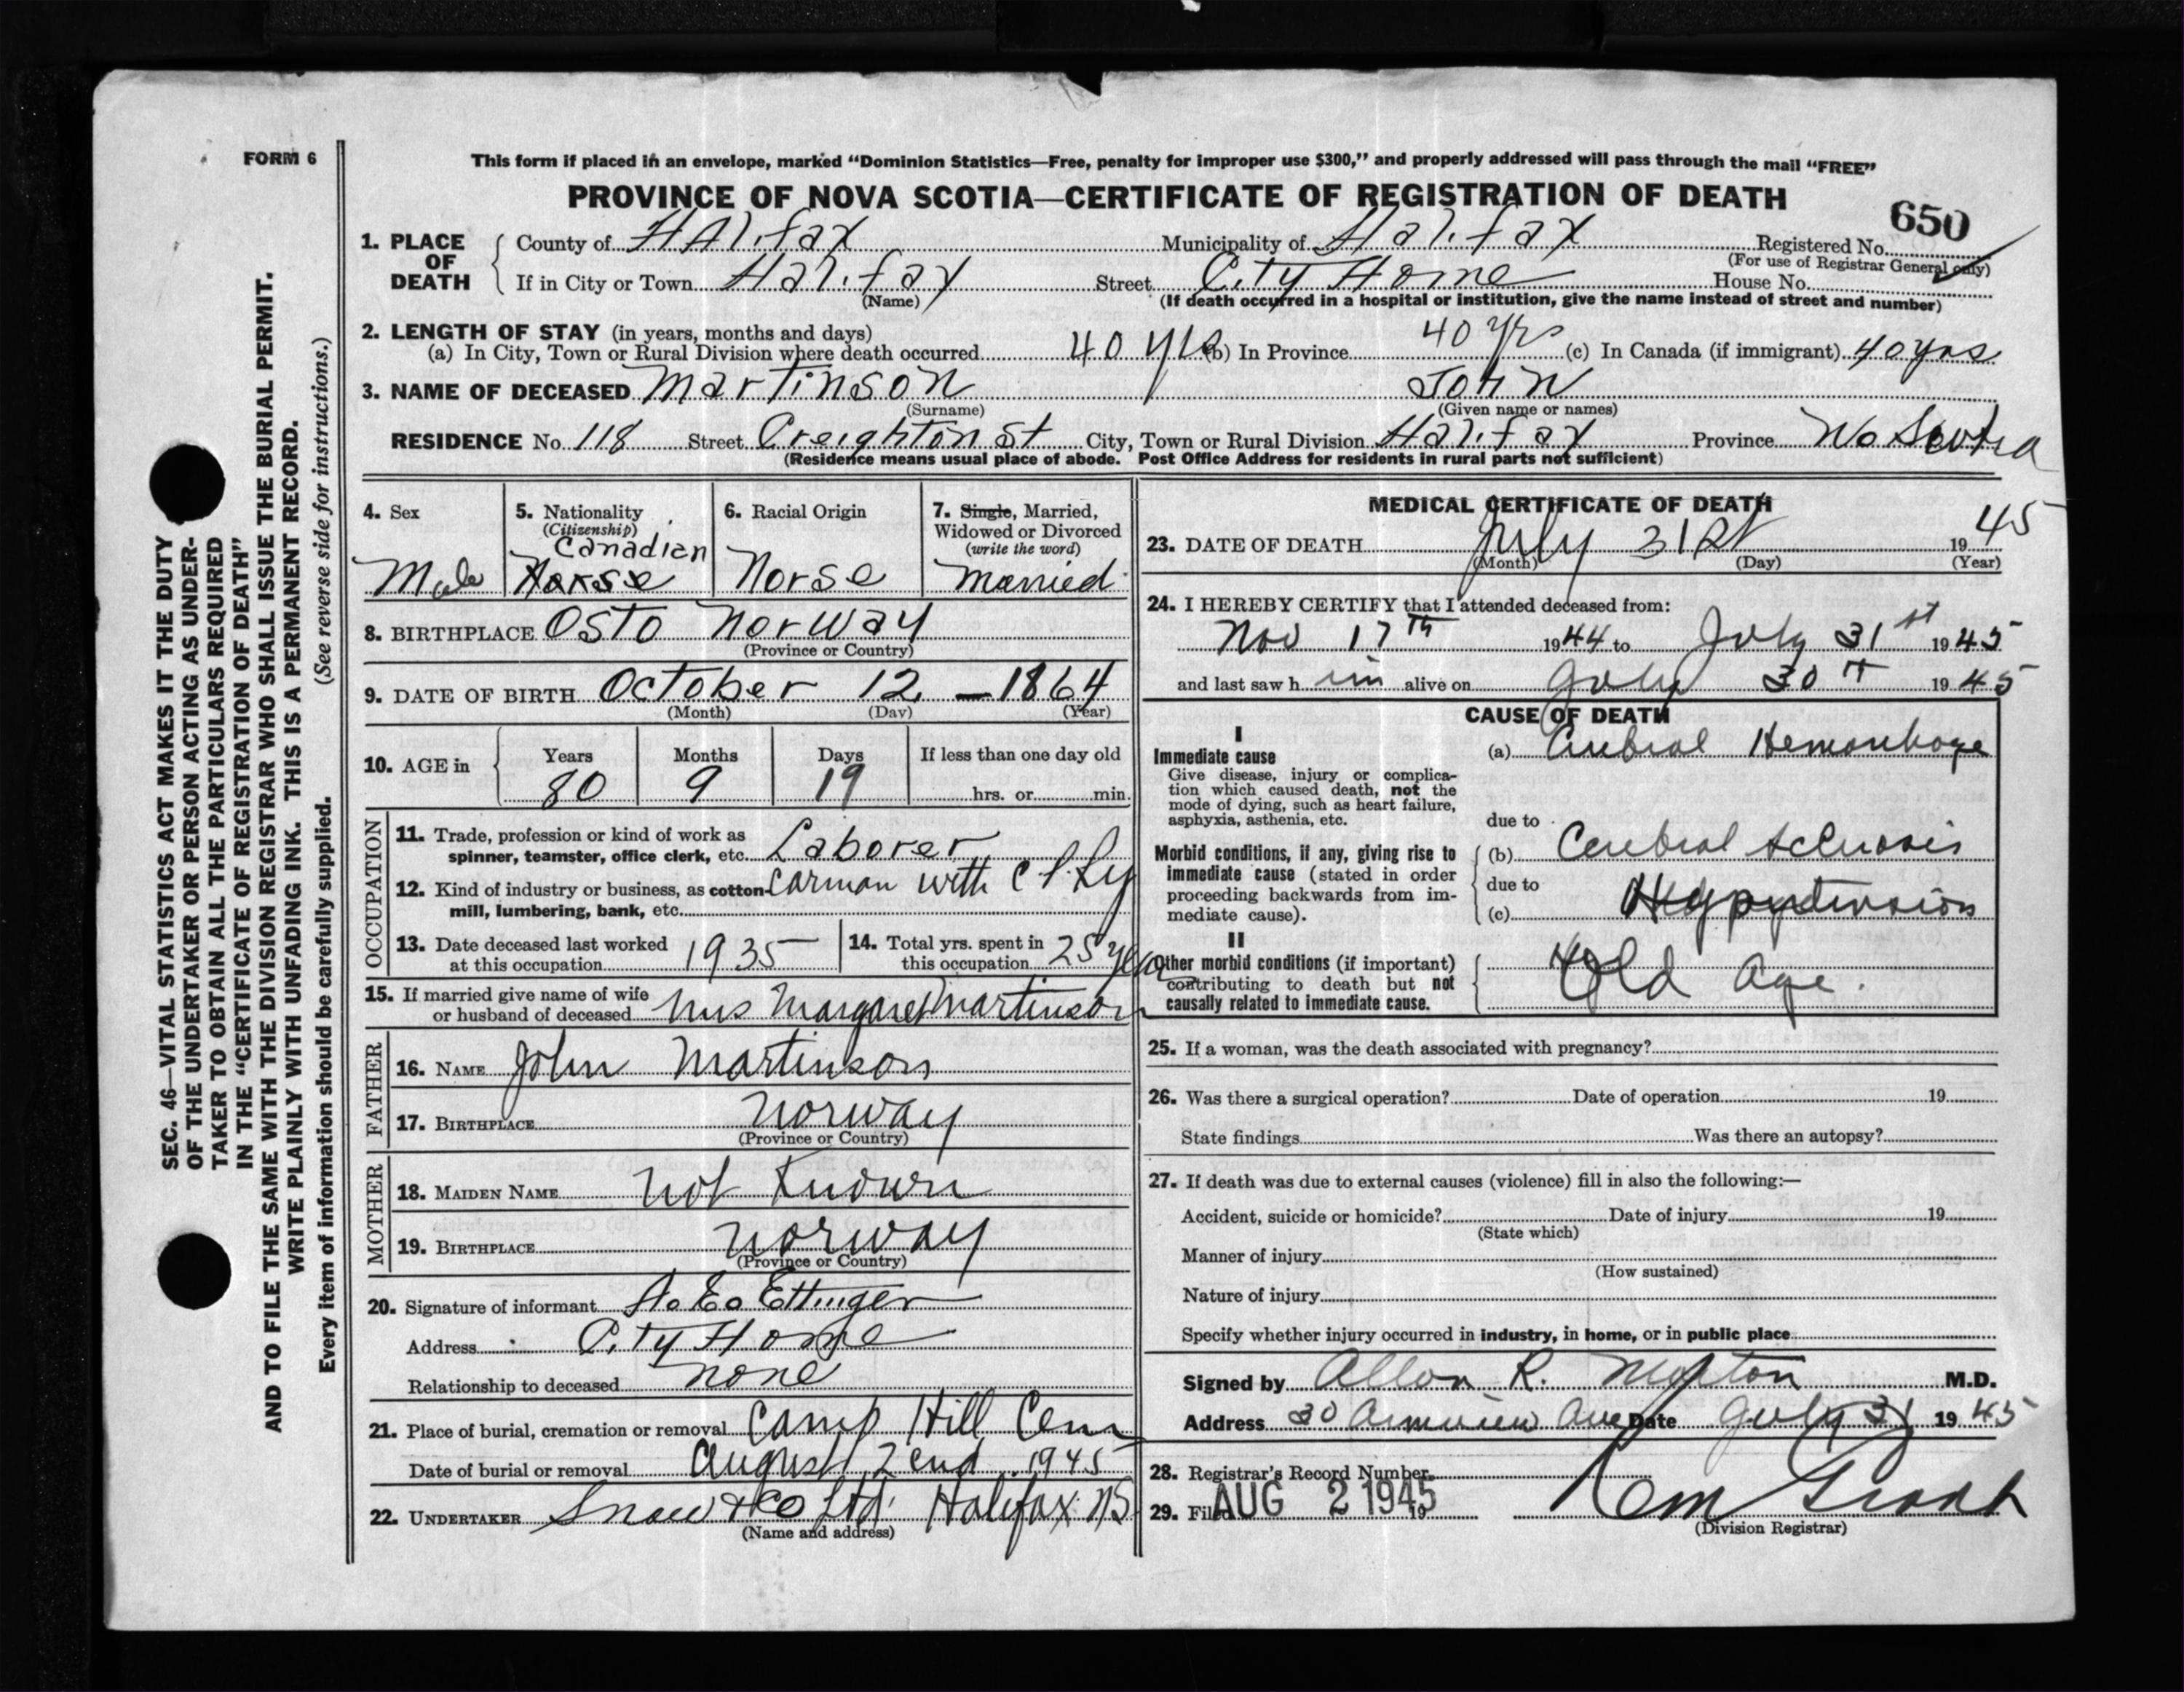 FORM 6
This form if placed in an envelope, marked “Dominion Statistics—Free, penalty for improper use $300,” and properly addressed will pass through the mail “FREE”
PROVINCE OF NOVA SCOTIA—CERTIFICATE OF REGISTRATION OF DEATH
650
1. PLACE OF DEATH County of Halifax Municipality of Halifax Registered No.
(For use of Registrar General only)
If in City or Town Halifax Street City Home House No.
(Name) (If death occurred in a hospital or institution, give the name instead of street and number)
2. LENGTH OF STAY (in years, months and days)
(a) In City, Town or Rural Division where death occurred 40 yrs (b) In Province 40 yrs (c) In Canada (if immigrant) 40 yrs
3. NAME OF DECEASED Martinson John
(Surname) (Given name or names)
RESIDENCE No. 118 Street Creighton St City, Town or Rural Division Halifax Province No Scotia
(Residence means usual place of abode. Post Office Address for residents in rural parts not sufficient)
4. Sex
Male
5. Nationality
(Citizenship)
Canadian
Norse
6. Racial Origin
Norse
7. Single, Married,
Widowed or Divorced
(write the word)
Married
8. BIRTHPLACE Osto Norway
(Province or Country)
9. DATE OF BIRTH October 12 – 1864
(Month) (Day) (Year)
10. AGE in Years Months Days If less than one day old
80 9 19 hrs. or min.
OCCUPATION
11. Trade, profession or kind of work as
spinner, teamster, office clerk, etc. Laborer
12. Kind of industry or business, as cotton- Carman with C P Ry
mill, lumbering, bank, etc.
13. Date deceased last worked
at this occupation 1935
14. Total yrs. spent in
this occupation 25 years
15. If married give name of wife
or husband of deceased Mrs Margaret Martinson
FATHER
16. NAME John Martinson
17. BIRTHPLACE Norway
(Province or Country)
MOTHER
18. MAIDEN NAME Not Known
19. BIRTHPLACE Norway
(Province or Country)
20. Signature of informant A. E. Ettinger
Address City Home
Relationship to deceased none
21. Place of burial, cremation or removal Camp Hill Cem
Date of burial or removal August 2end 1945
22. UNDERTAKER Snow & Co Ltd Halifax NS
(Name and address)
MEDICAL CERTIFICATE OF DEATH
23. DATE OF DEATH July 31st 1945
(Month) (Day) (Year)
24. I HEREBY CERTIFY that I attended deceased from:
Nov 17th 1944 to July 31st 1945
and last saw him alive on July 30th 1945
CAUSE OF DEATH
I
Immediate cause
Give disease, injury or complica-
tion which caused death, not the
mode of dying, such as heart failure,
asphyxia, asthenia, etc.
(a) Cerebral Hemorrhage
due to
Morbid conditions, if any, giving rise to
immediate cause (stated in order
proceeding backwards from im-
mediate cause).
(b) Cerebral Sclerosis
due to
(c) Hypertension
II
Other morbid conditions (if important)
contributing to death but not
causally related to immediate cause.
Old Age.
25. If a woman, was the death associated with pregnancy?
26. Was there a surgical operation? Date of operation 19
State findings Was there an autopsy?
27. If death was due to external causes (violence) fill in also the following:—
Accident, suicide or homicide? Date of injury 19
(State which)
Manner of injury
(How sustained)
Nature of injury
Specify whether injury occurred in industry, in home, or in public place
Signed by Allan R. Morton M.D.
Address 30 Armview Ave Date July 31 1945
28. Registrar's Record Number
29. Filed AUG 2 1945 19
(Division Registrar)
SEC. 46—VITAL STATISTICS ACT MAKES IT THE DUTY
OF THE UNDERTAKER OR PERSON ACTING AS UNDER-
TAKER TO OBTAIN ALL THE PARTICULARS REQUIRED
IN THE “CERTIFICATE OF REGISTRATION OF DEATH”
AND TO FILE THE SAME WITH THE DIVISION REGISTRAR WHO SHALL ISSUE THE BURIAL PERMIT.
WRITE PLAINLY WITH UNFADING INK. THIS IS A PERMANENT RECORD.
Every item of information should be carefully supplied. (See reverse side for instructions.)